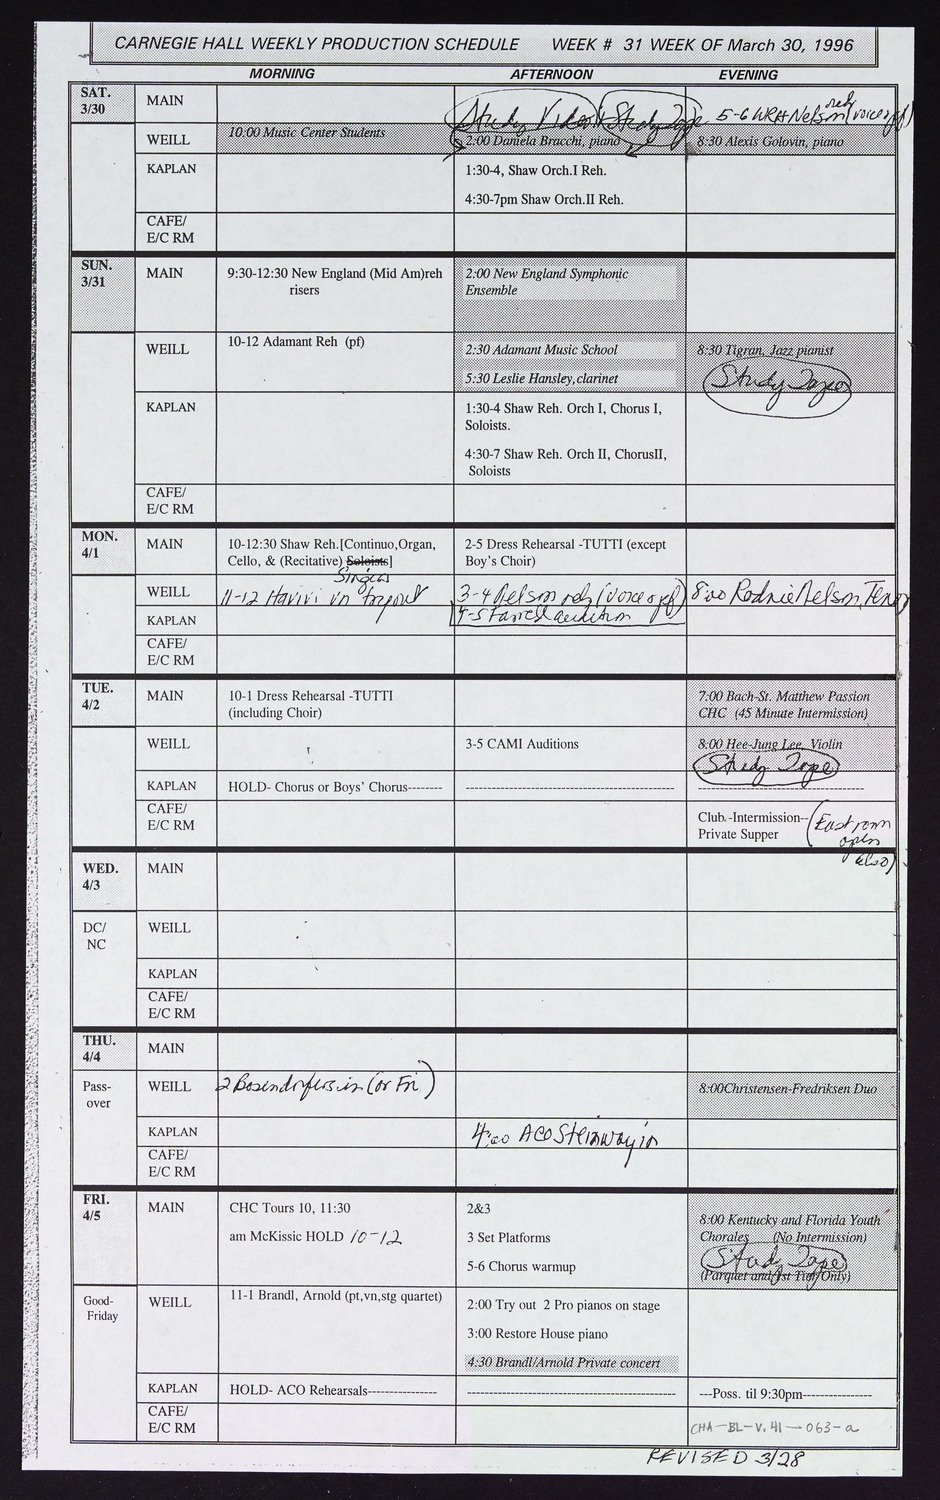 CARNEGIE HALL WEEKLY PRODUCTION SCHEDULE WEEK # 31 WEEK OF March 30, 1996
MORNING AFTERNOON EVENING
SAT.
3/30
MAIN
Study Video + Study Tape
5-6 WRH Nelson reh (voice & pf)
WEILL
10:00 Music Center Students
2:00 Daniela Bracchi, piano
8:30 Alexis Golovin, piano
KAPLAN
1:30-4, Shaw Orch.I Reh.
4:30-7pm Shaw Orch.II Reh.
CAFE/
E/C RM
SUN.
3/31
MAIN
9:30-12:30 New England (Mid Am)reh
risers
2:00 New England Symphonic
Ensemble
WEILL
10-12 Adamant Reh (pf)
2:30 Adamant Music School
5:30 Leslie Hansley, clarinet
8:30 Tigran, Jazz pianist
Study Tape
KAPLAN
1:30-4 Shaw Reh. Orch I, Chorus I,
Soloists.
4:30-7 Shaw Reh. Orch II, ChorusII,
Soloists
CAFE/
E/C RM
MON.
4/1
MAIN
10-12:30 Shaw Reh.[Continuo,Organ,
Cello, & (Recitative) Soloists]
Singers
2-5 Dress Rehearsal -TUTTI (except
Boy's Choir)
WEILL
11-12 Havivi vn tryout
3-4 Nelson reh (voice & pf)
8:00 Rodnie Nelson, Tenor
KAPLAN
4-5 Farrell audition
CAFE/
E/C RM
TUE.
4/2
MAIN
10-1 Dress Rehearsal -TUTTI
(including Choir)
7:00 Bach-St. Matthew Passion
CHC (45 Minute Intermission)
WEILL
3-5 CAMI Auditions
8:00 Hee-Jung Lee, Violin
Study Tape
KAPLAN
HOLD- Chorus or Boys' Chorus--------
CAFE/
E/C RM
Club.-Intermission--
Private Supper
(East room
open
also)
WED.
4/3
MAIN
DC/
NC
WEILL
KAPLAN
CAFE/
E/C RM
THU.
4/4
MAIN
Pass-
over
WEILL
2 Bosendorfers in (or Fri)
8:00Christensen-Fredriksen Duo
KAPLAN
4:00 ACO Steinway in
CAFE/
E/C RM
FRI.
4/5
MAIN
CHC Tours 10, 11:30
am McKissic HOLD 10-12
2&3
3 Set Platforms
5-6 Chorus warmup
8:00 Kentucky and Florida Youth
Chorales (No Intermission)
Study Tape
(Parquet and 1st Tier Only)
Good-
Friday
WEILL
11-1 Brandl, Arnold (pt,vn,stg quartet)
2:00 Try out 2 Pro pianos on stage
3:00 Restore House piano
4:30 Brandl/Arnold Private concert
KAPLAN
HOLD- ACO Rehearsals----------------
---Poss. til 9:30pm----------------
CAFE/
E/C RM
CHA-BL-V.41-063-a
REVISED 3/28